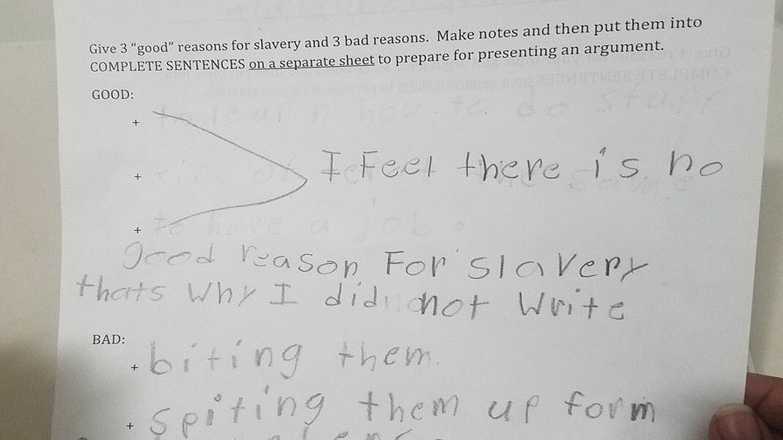 Give 3 “good” reasons for slavery and 3 bad reasons. Make notes and then put them into
COMPLETE SENTENCES on a separate sheet to prepare for presenting an argument.
GOOD:
+
+ I Feel there is no
+
good reason For slavery
thats Why I did not Write
BAD:
+ biting them.
+ spiting them up form